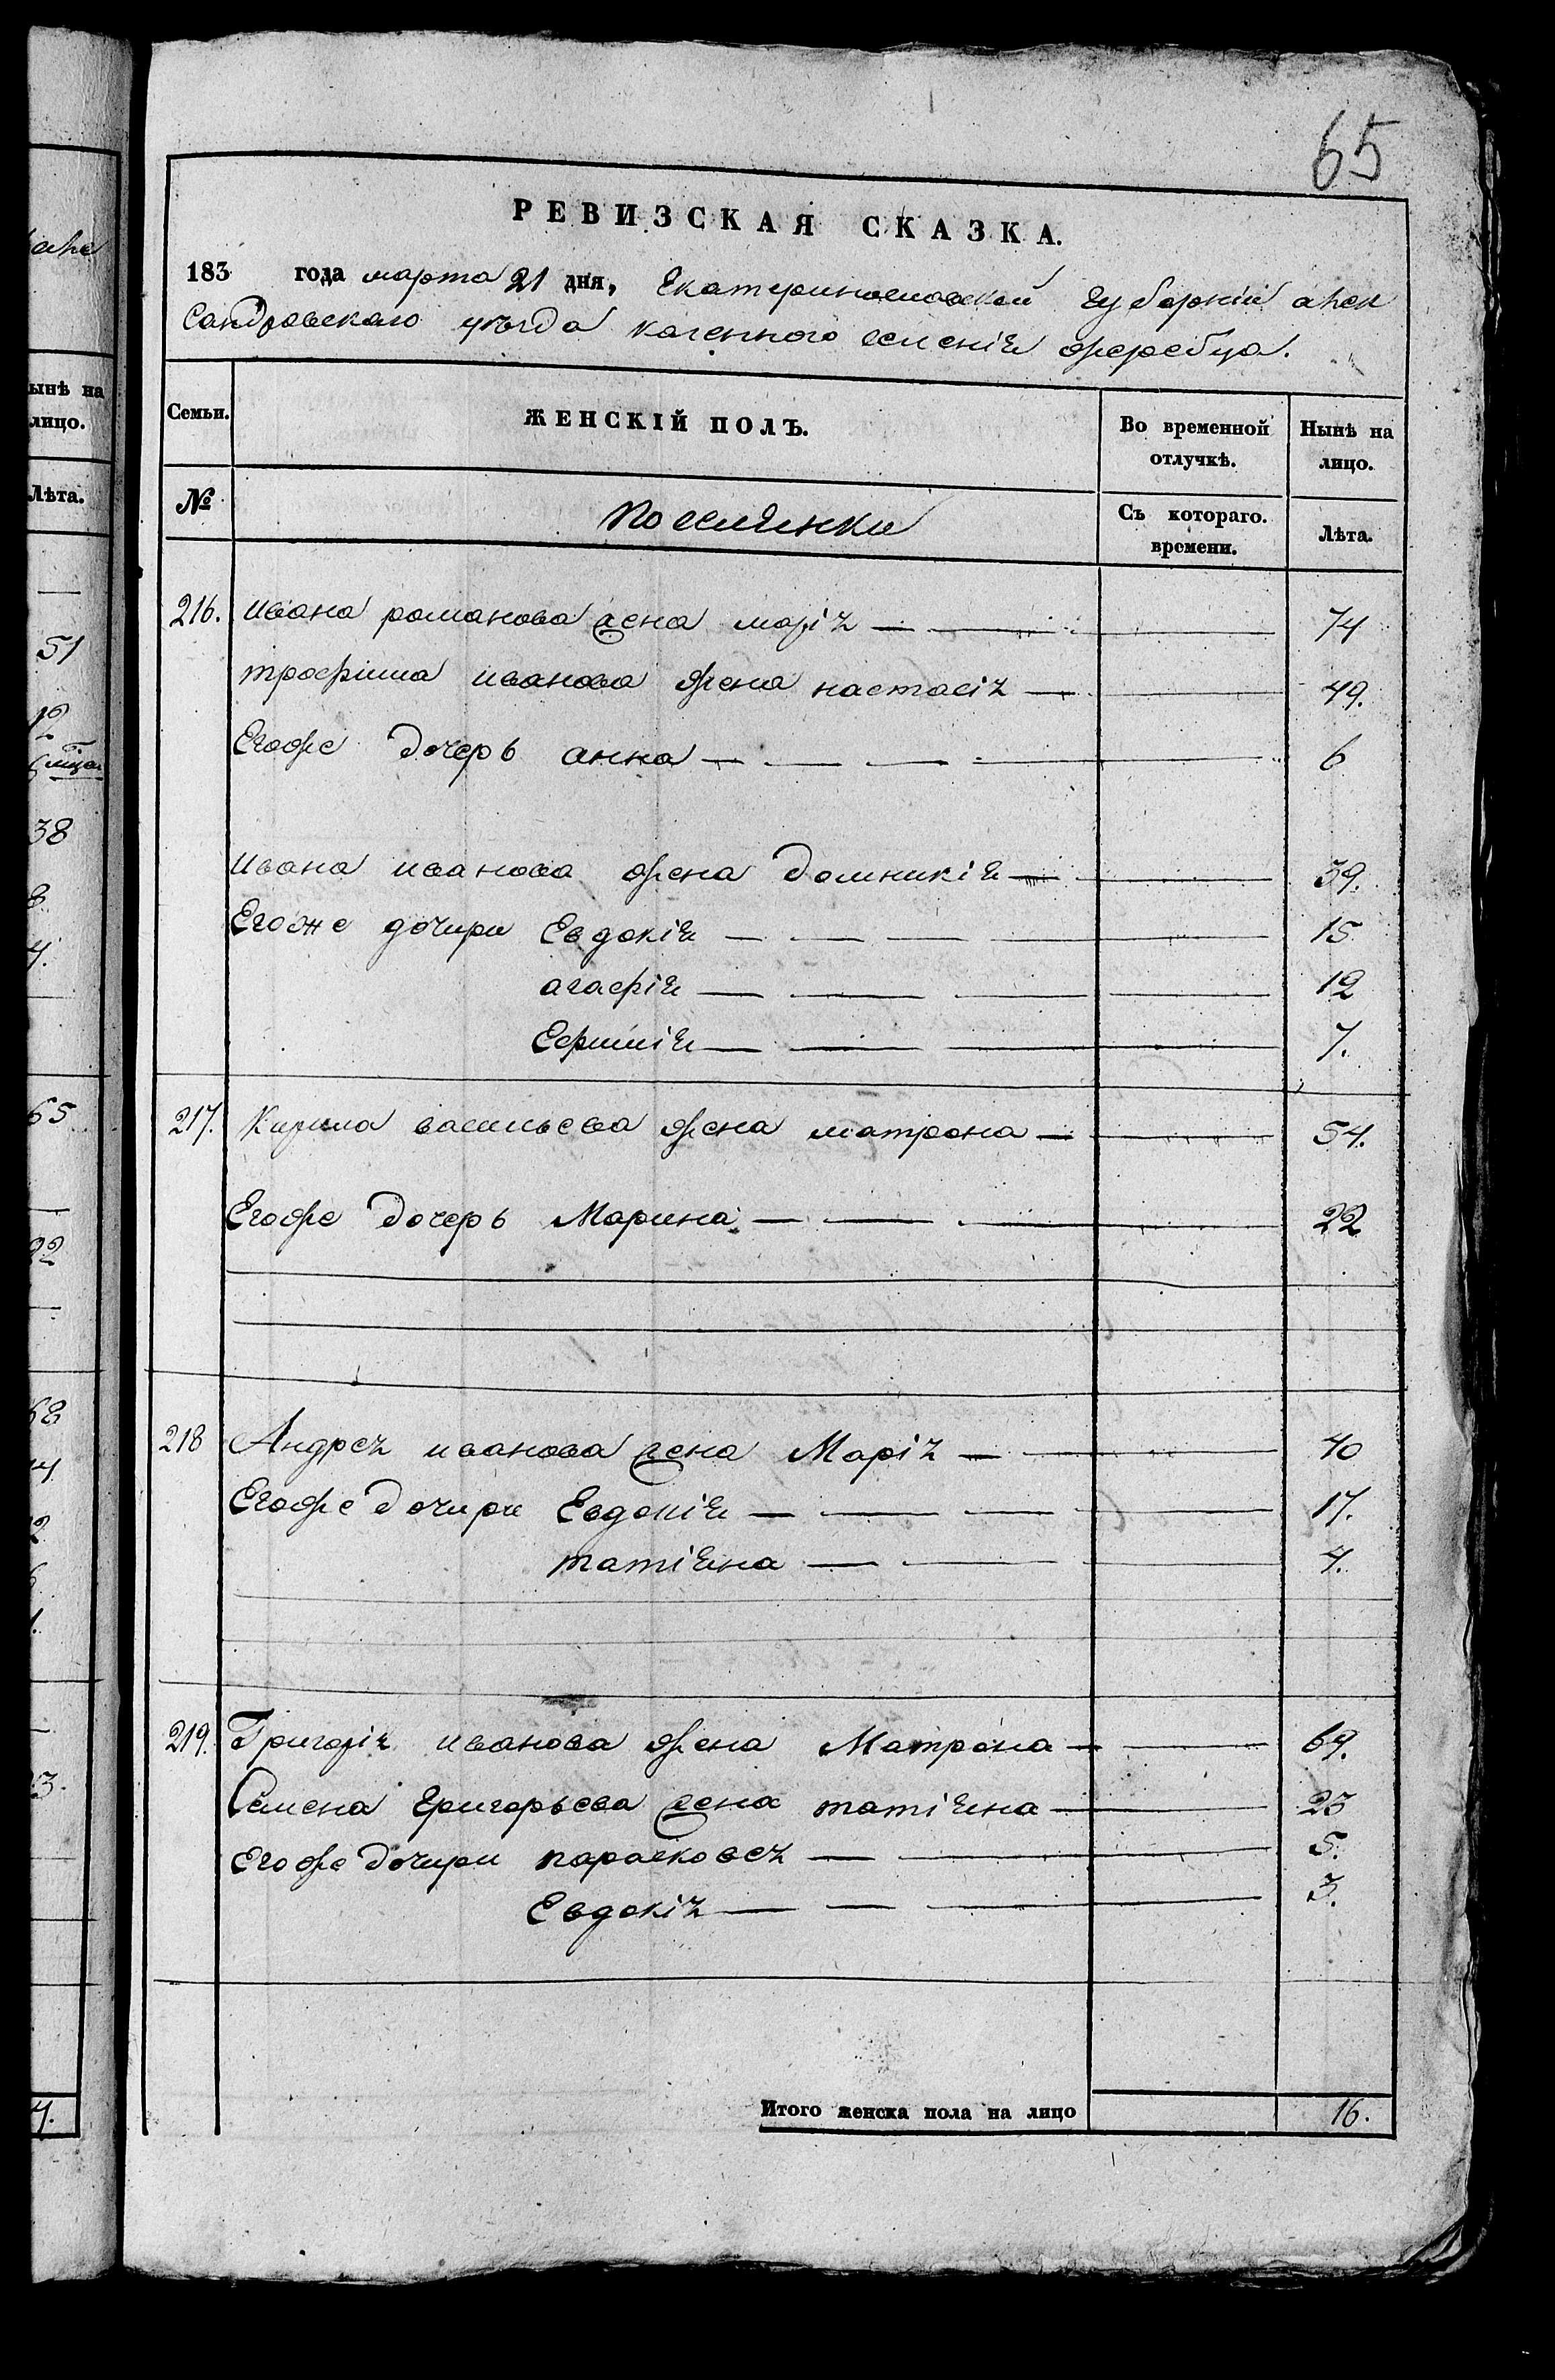 65
РЕВИЗСКАЯ СКАЗКА.
183 года марта 21 дня, Екатеринославской губерній алек
сандровскаго уезда казенного селенія жеребца.
Семьи. ЖЕНСКІЙ ПОЛЪ. Во временной отлучкѣ. Нынѣ на лицо.
№ поселянки Съ котораго. времени. Лѣта.
216. ивана романова жена марія 74
трофима иванова жена настасія 49.
Егоже дочерь анна 6
ивана иванова жена домникія 39.
Егоже дочири Евдокія 15
агафія 12
Ефимія 7.
217. кирила васильева жена матрона 54.
Егоже дочерь Марина 22
218 Андрея иванова жена Марія 40
Егоже дочири Евдокія 17.
татіяна 4.
219. Григорія иванова жена Матрона 69.
Семена григорьева жена татіяна 23
егоже дочири парасковея 5.
Евдокія 3.
Итого женска пола на лицо 16.
ынѣ на
лицо.
Лѣта.
51
12
38
8
4.
65
22